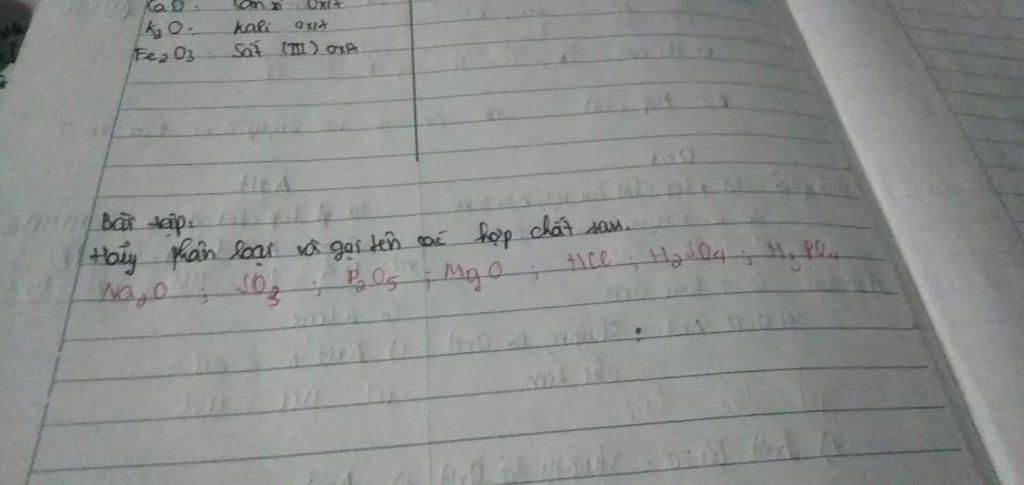 CaO: Canxi oxit
K₂O: Kali oxit
Fe₂O₃ Sắt (III) oxit
Bài tập:
Hãy phân loại và gọi tên các hợp chất sau.
Na₂O ; SO₃ ; P₂O₅ ; MgO ; HCl ; H₂SO₄ ; H₃PO₄